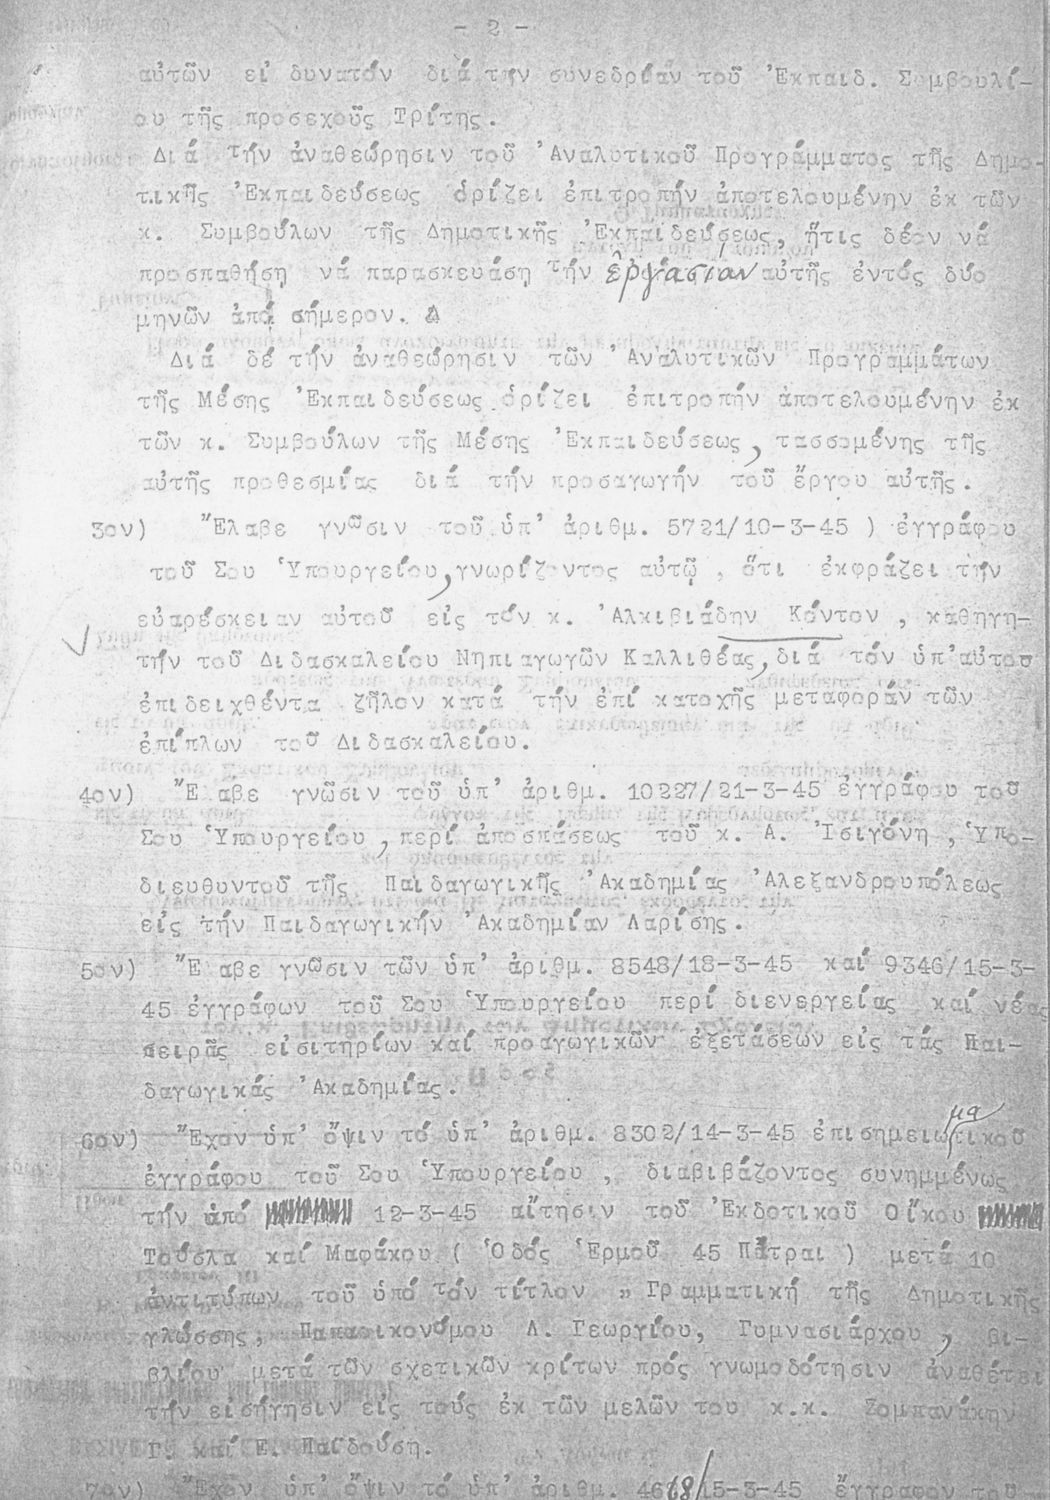 - 2 -
αὐτῶν εἰ δυνατόν διά τήν συνεδρίαν τοῦ Ἐκπαιδ. Συμβουλί-
ου τῆς προσεχοῦς Τρίτης.
Διά τήν ἀναθεώρησιν τοῦ Ἀναλυτικοῦ Προγράμματος τῆς Δημο-
τικῆς Ἐκπαιδεύσεως ὁρίζει ἐπιτροπήν ἀποτελουμένην ἐκ τῶν
κ. Συμβούλων τῆς Δημοτικῆς Ἐκπαιδεύσεως, ἥτις δέον νά
προσπαθήσῃ νά παρασκευάσῃ τήν ἐργασίαν αὐτῆς ἐντός δύο
μηνῶν ἀπό σήμερον.
Διά δέ τήν ἀναθεώρησιν τῶν Ἀναλυτικῶν Προγραμμάτων
τῆς Μέσης Ἐκπαιδεύσεως ὁρίζει ἐπιτροπήν ἀποτελουμένην ἐκ
τῶν κ. Συμβούλων τῆς Μέσης Ἐκπαιδεύσεως, τασσομένης τῆς
αὐτῆς προθεσμίας διά τήν προσαγωγήν τοῦ ἔργου αὐτῆς.
3ον) Ἔλαβε γνῶσιν τοῦ ὑπ' ἀριθμ. 5721/10-3-45 ) ἐγγράφου
τοῦ Σου Ὑπουργείου, γνωρίζοντος αὐτῷ, ὅτι ἐκφράζει τήν
εὐαρέσκειαν αὐτοῦ εἰς τόν κ. Ἀλκιβιάδην Κόντον, καθηγη-
τήν τοῦ Διδασκαλείου Νηπιαγωγῶν Καλλιθέας, διά τόν ὑπ'αὐτοῦ
ἐπιδειχθέντα ζῆλον κατά τήν ἐπί κατοχῆς μεταφοράν τῶν
ἐπίπλων τοῦ Διδασκαλείου.
4ον) Ἔ αβε γνῶσιν τοῦ ὑπ' ἀριθμ. 10227/21-3-45 ἐγγράφου τοῦ
Σου Ὑπουργείου, περί ἀποσπάσεως τοῦ κ. Α. Ἰσιγόνη, Ὑπο-
διευθυντοῦ τῆς Παιδαγωγικῆς Ἀκαδημίας Ἀλεξανδρουπόλεως
εἰς τήν Παιδαγωγικήν Ἀκαδημίαν Λαρίσης.
5ον) Ἔ αβε γνῶσιν τῶν ὑπ' ἀριθμ. 8548/18-3-45 καί 9346/15-3-
45 ἐγγράφων τοῦ Σου Ὑπουργείου περί διενεργείας καί νέας
σειρᾶς εἰσιτηρίων καί προαγωγικῶν ἐξετάσεων εἰς τάς Παι-
δαγωγικάς Ἀκαδημίας.
6ον) Ἔχον ὑπ' ὄψιν τό ὑπ' ἀριθμ. 8302/14-3-45 ἐπισημειωματικοῦ
ἐγγράφου τοῦ Σου Ὑπουργείου, διαβιβάζοντος συνημμένως
τήν ἀπό 12-3-45 αἴτησιν τοῦ Ἐκδοτικοῦ Οἴκου
Τσύσλα καί Μαφάκου ( Ὁδός Ἑρμοῦ 45 Πάτραι ) μετά 10
ἀντιτύπων τοῦ ὑπό τόν τίτλον " Γραμματική τῆς Δημοτικῆς
γλώσσης, Παπαοικονόμου Λ. Γεωργίου, Γυμνασιάρχου, βι-
βλίου μετά τῶν σχετικῶν κρίτων πρός γνωμοδότησιν ἀναθέτει
τήν εἰσήγησιν εἰς τούς ἐκ τῶν μελῶν του κ.κ. Ζομπανάκην
Γ. καί Ε. Παϊδούση.
7ον) Ἔχον ὑπ' ὄψιν τό ὑπ' ἀριθμ. 4668/15-3-45 ἔγγραφον τοῦ